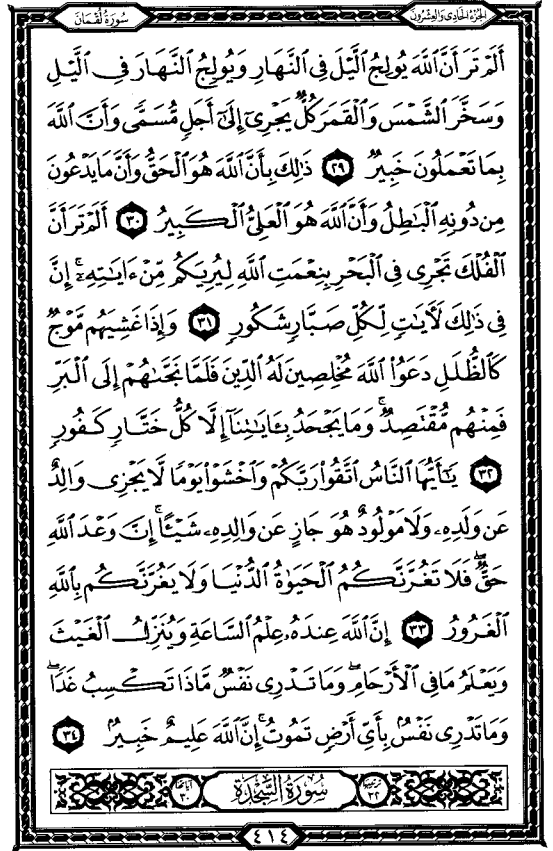 سُورَةُ لُقْمَانَ
الجُزْءُ الحَادِي وَالعِشْرُونَ
أَلَمْ تَرَ أَنَّ ٱللَّهَ يُولِجُ ٱلَّيْلَ فِى ٱلنَّهَارِ وَيُولِجُ ٱلنَّهَارَ فِى ٱلَّيْلِ
وَسَخَّرَ ٱلشَّمْسَ وَٱلْقَمَرَ كُلٌّ يَجْرِىٓ إِلَىٰٓ أَجَلٍ مُّسَمًّى وَأَنَّ ٱللَّهَ
بِمَا تَعْمَلُونَ خَبِيرٌ ٢٩ ذَٰلِكَ بِأَنَّ ٱللَّهَ هُوَ ٱلْحَقُّ وَأَنَّ مَا يَدْعُونَ
مِن دُونِهِ ٱلْبَٰطِلُ وَأَنَّ ٱللَّهَ هُوَ ٱلْعَلِىُّ ٱلْكَبِيرُ ٣٠ أَلَمْ تَرَ أَنَّ
ٱلْفُلْكَ تَجْرِى فِى ٱلْبَحْرِ بِنِعْمَتِ ٱللَّهِ لِيُرِيَكُم مِّنْ ءَايَٰتِهِۦٓ ۚ إِنَّ
فِى ذَٰلِكَ لَءَايَٰتٍ لِّكُلِّ صَبَّارٍ شَكُورٍ ٣١ وَإِذَا غَشِيَهُم مَّوْجٌ
كَٱلظُّلَلِ دَعَوُا۟ ٱللَّهَ مُخْلِصِينَ لَهُ ٱلدِّينَ فَلَمَّا نَجَّىٰهُمْ إِلَى ٱلْبَرِّ
فَمِنْهُم مُّقْتَصِدٌ ۚ وَمَا يَجْحَدُ بِـَٔايَٰتِنَآ إِلَّا كُلُّ خَتَّارٍ كَفُورٍ
٣٢ يَٰٓأَيُّهَا ٱلنَّاسُ ٱتَّقُوا۟ رَبَّكُمْ وَٱخْشَوْا۟ يَوْمًا لَّا يَجْزِى وَالِدٌ
عَن وَلَدِهِۦ وَلَا مَوْلُودٌ هُوَ جَازٍ عَن وَالِدِهِۦ شَيْـًٔا ۚ إِنَّ وَعْدَ ٱللَّهِ
حَقٌّ ۖ فَلَا تَغُرَّنَّكُمُ ٱلْحَيَوٰةُ ٱلدُّنْيَا وَلَا يَغُرَّنَّكُم بِٱللَّهِ
ٱلْغَرُورُ ٣٣ إِنَّ ٱللَّهَ عِندَهُۥ عِلْمُ ٱلسَّاعَةِ وَيُنَزِّلُ ٱلْغَيْثَ
وَيَعْلَمُ مَا فِى ٱلْأَرْحَامِ ۖ وَمَا تَدْرِى نَفْسٌ مَّاذَا تَكْسِبُ غَدًا ۖ
وَمَا تَدْرِى نَفْسٌۢ بِأَىِّ أَرْضٍ تَمُوتُ ۚ إِنَّ ٱللَّهَ عَلِيمٌ خَبِيرٌۢ ٣٤
ترتيبها ٣٢ سُورَةُ السَّجْدَةِ آياتها ٣٠
٤١٤